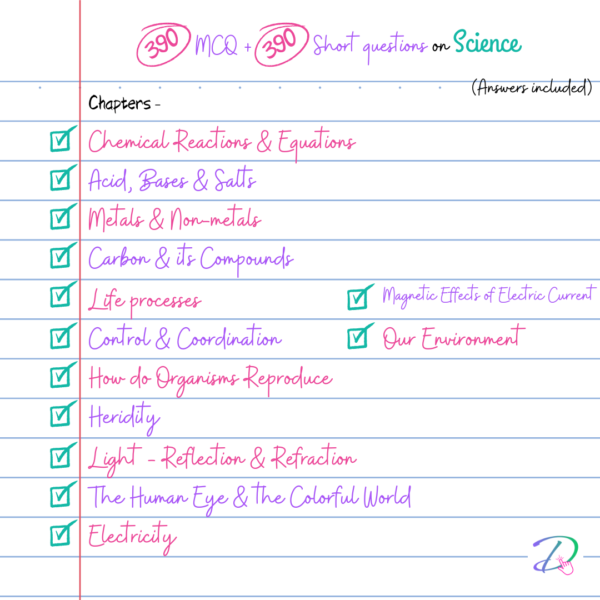 390 MCQ + 390 Short questions on Science
(Answers included)
Chapters -
Chemical Reactions & Equations
Acid, Bases & Salts
Metals & Non-metals
Carbon & its Compounds
Life processes
Control & Coordination
How do Organisms Reproduce
Heridity
Light - Reflection & Refraction
The Human Eye & the Colorful World
Electricity
Magnetic Effects of Electric Current
Our Environment
D